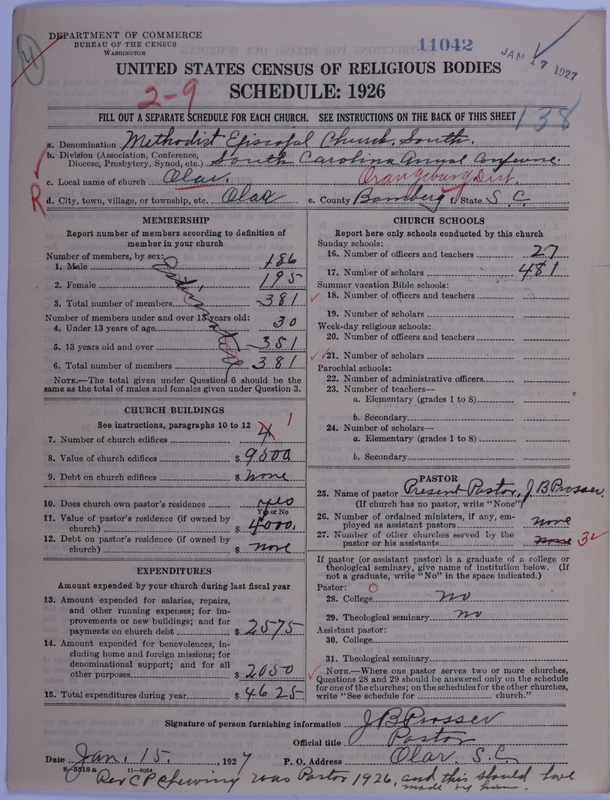 DEPARTMENT OF COMMERCE
BUREAU OF THE CENSUS
WASHINGTON
4
11042
JAN 17 1927
UNITED STATES CENSUS OF RELIGIOUS BODIES
SCHEDULE: 1926
2-9
FILL OUT A SEPARATE SCHEDULE FOR EACH CHURCH. SEE INSTRUCTIONS ON THE BACK OF THIS SHEET
138
a. Denomination Methodist Episcopal Church, South.
b. Division (Association, Conference, Diocese, Presbytery, Synod, etc.) South Carolina Annual Conference
c. Local name of church Olar. Orangeburg Dist.
R
d. City, town, village, or township, etc. Olar e. County Bamberg f. State S. C.
MEMBERSHIP
Report number of members according to definition of
member in your church
Number of members, by sex:
1. Male 186
2. Female 195
3. Total number of members 381
Number of members under and over 13 years old:
4. Under 13 years of age 30
5. 13 years old and over 351
6. Total number of members 381
Estimated
NOTE.—The total given under Question 6 should be
same as the total of males and females given under Question 3.
CHURCH BUILDINGS
See instructions, paragraphs 10 to 12
7. Number of church edifices 4 1
8. Value of church edifices $ 9500
9. Debt on church edifices $ none
10. Does church own pastor's residence yes
Yes or No
11. Value of pastor's residence (if owned by
church) $ 4000.
12. Debt on pastor's residence (if owned by
church) $ none
EXPENDITURES
Amount expended by your church during last fiscal year
13. Amount expended for salaries, repairs,
and other running expenses; for im-
provements or new buildings; and for
payments on church debt $ 2575
14. Amount expended for benevolences, in-
cluding home and foreign missions; for
denominational support; and for all
other purposes $ 2050
15. Total expenditures during year $ 4625
CHURCH SCHOOLS
Report here only schools conducted by this church
Sunday schools:
16. Number of officers and teachers 27
17. Number of scholars 481
Summer vacation Bible schools:
18. Number of officers and teachers
19. Number of scholars
Week-day religious schools:
20. Number of officers and teachers
21. Number of scholars
Parochial schools:
22. Number of administrative officers
23. Number of teachers—
a. Elementary (grades 1 to 8)
b. Secondary
24. Number of scholars—
a. Elementary (grades 1 to 8)
b. Secondary
PASTOR
25. Name of pastor Present Pastor, J B Prosser
(If church has no pastor, write "None")
26. Number of ordained ministers, if any, em-
ployed as assistant pastors none
27. Number of other churches served by the
pastor or his assistants none 3
If pastor (or assistant pastor) is a graduate of a college or
theological seminary, give name of institution below. (If
not a graduate, write "No" in the space indicated.)
Pastor: 0
28. College no
29. Theological seminary no
Assistant pastor:
30. College
31. Theological seminary
NOTE.—Where one pastor serves two or more churches,
Questions 28 and 29 should be answered only on the schedule
for one of the churches; on the schedules for the other churches,
write "See schedule for church."
Signature of person furnishing information J B Prosser
Official title Pastor
Date Jan. 15. 1927 P. O. Address Olar. S. C.
8-5518a 11-8034
Rev C P Chewning was Pastor 1926, and this should have
made by him.